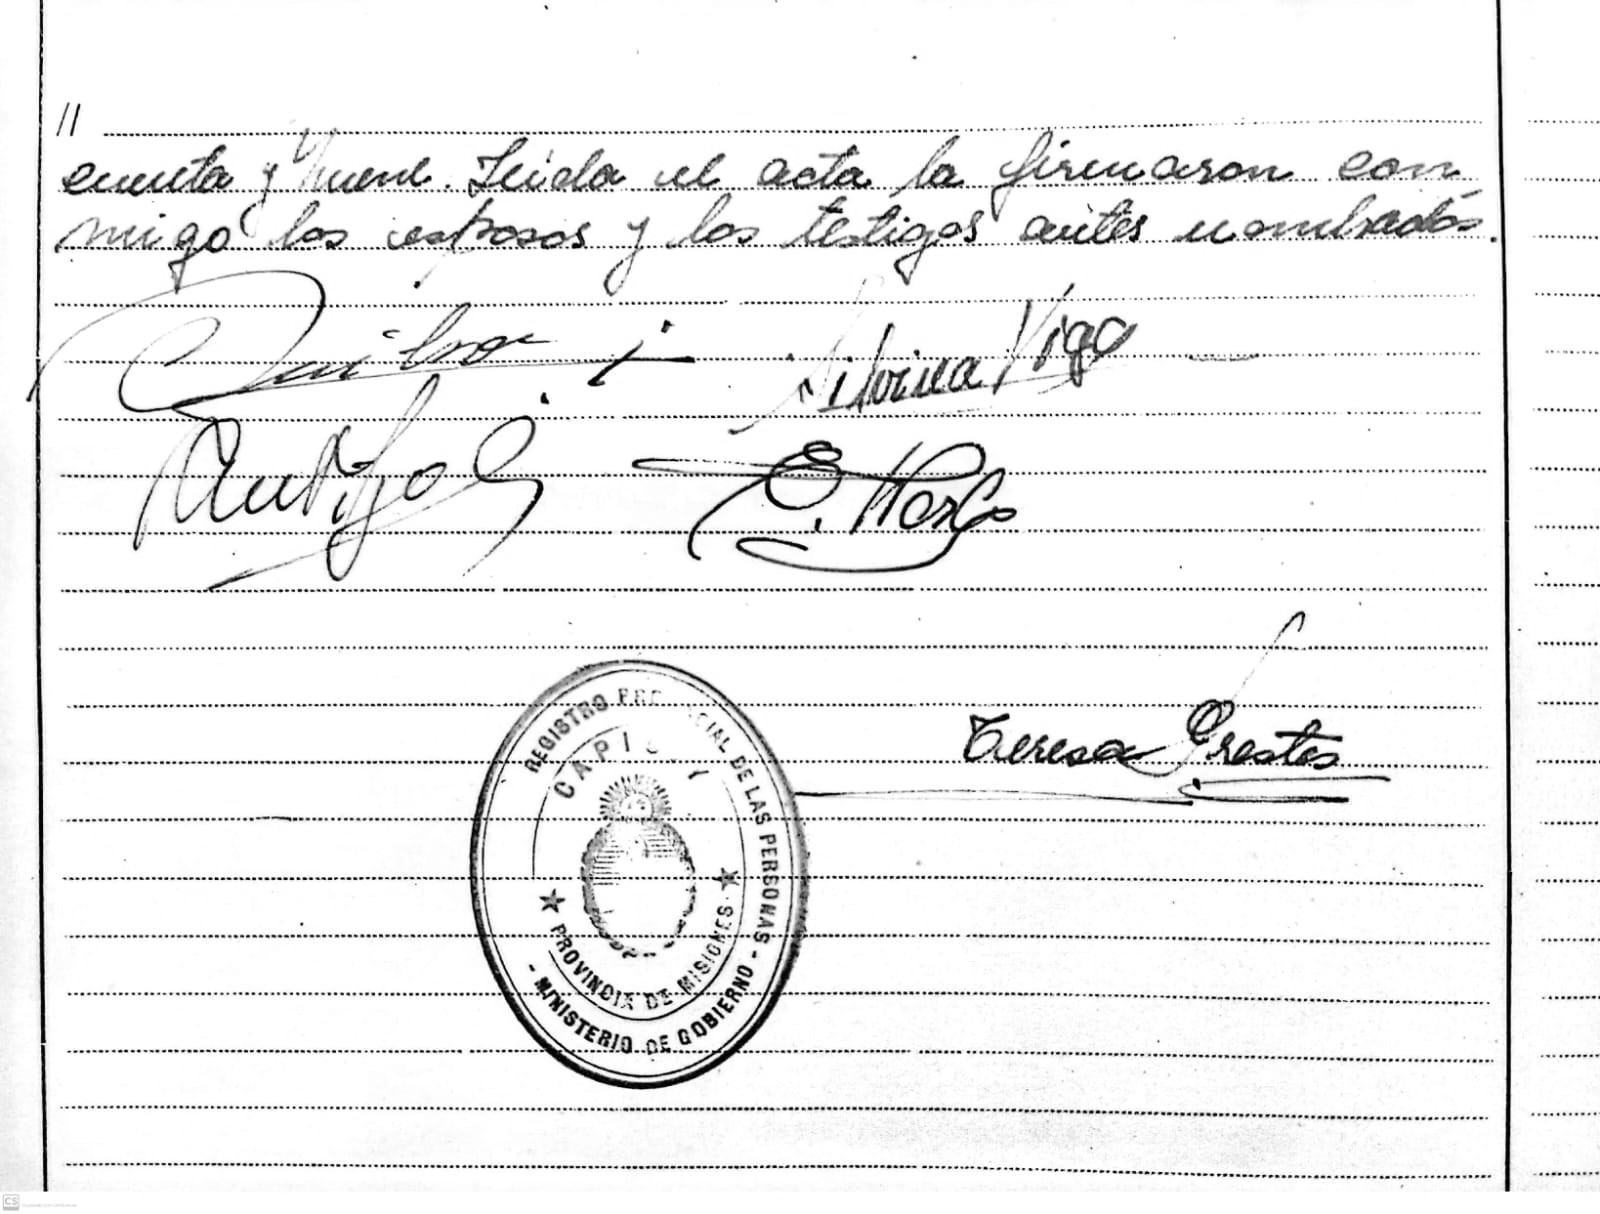 //
cuenta y nueve. Leída el acta la firmaron con
migo los esposos y los testigos antes nombrados.
Silvina Vigo
E.
Teresa Prestes
REGISTRO DE LAS PERSONAS
CAPI
PROVINCIA DE MISIONES
- MINISTERIO DE GOBIERNO -
CS